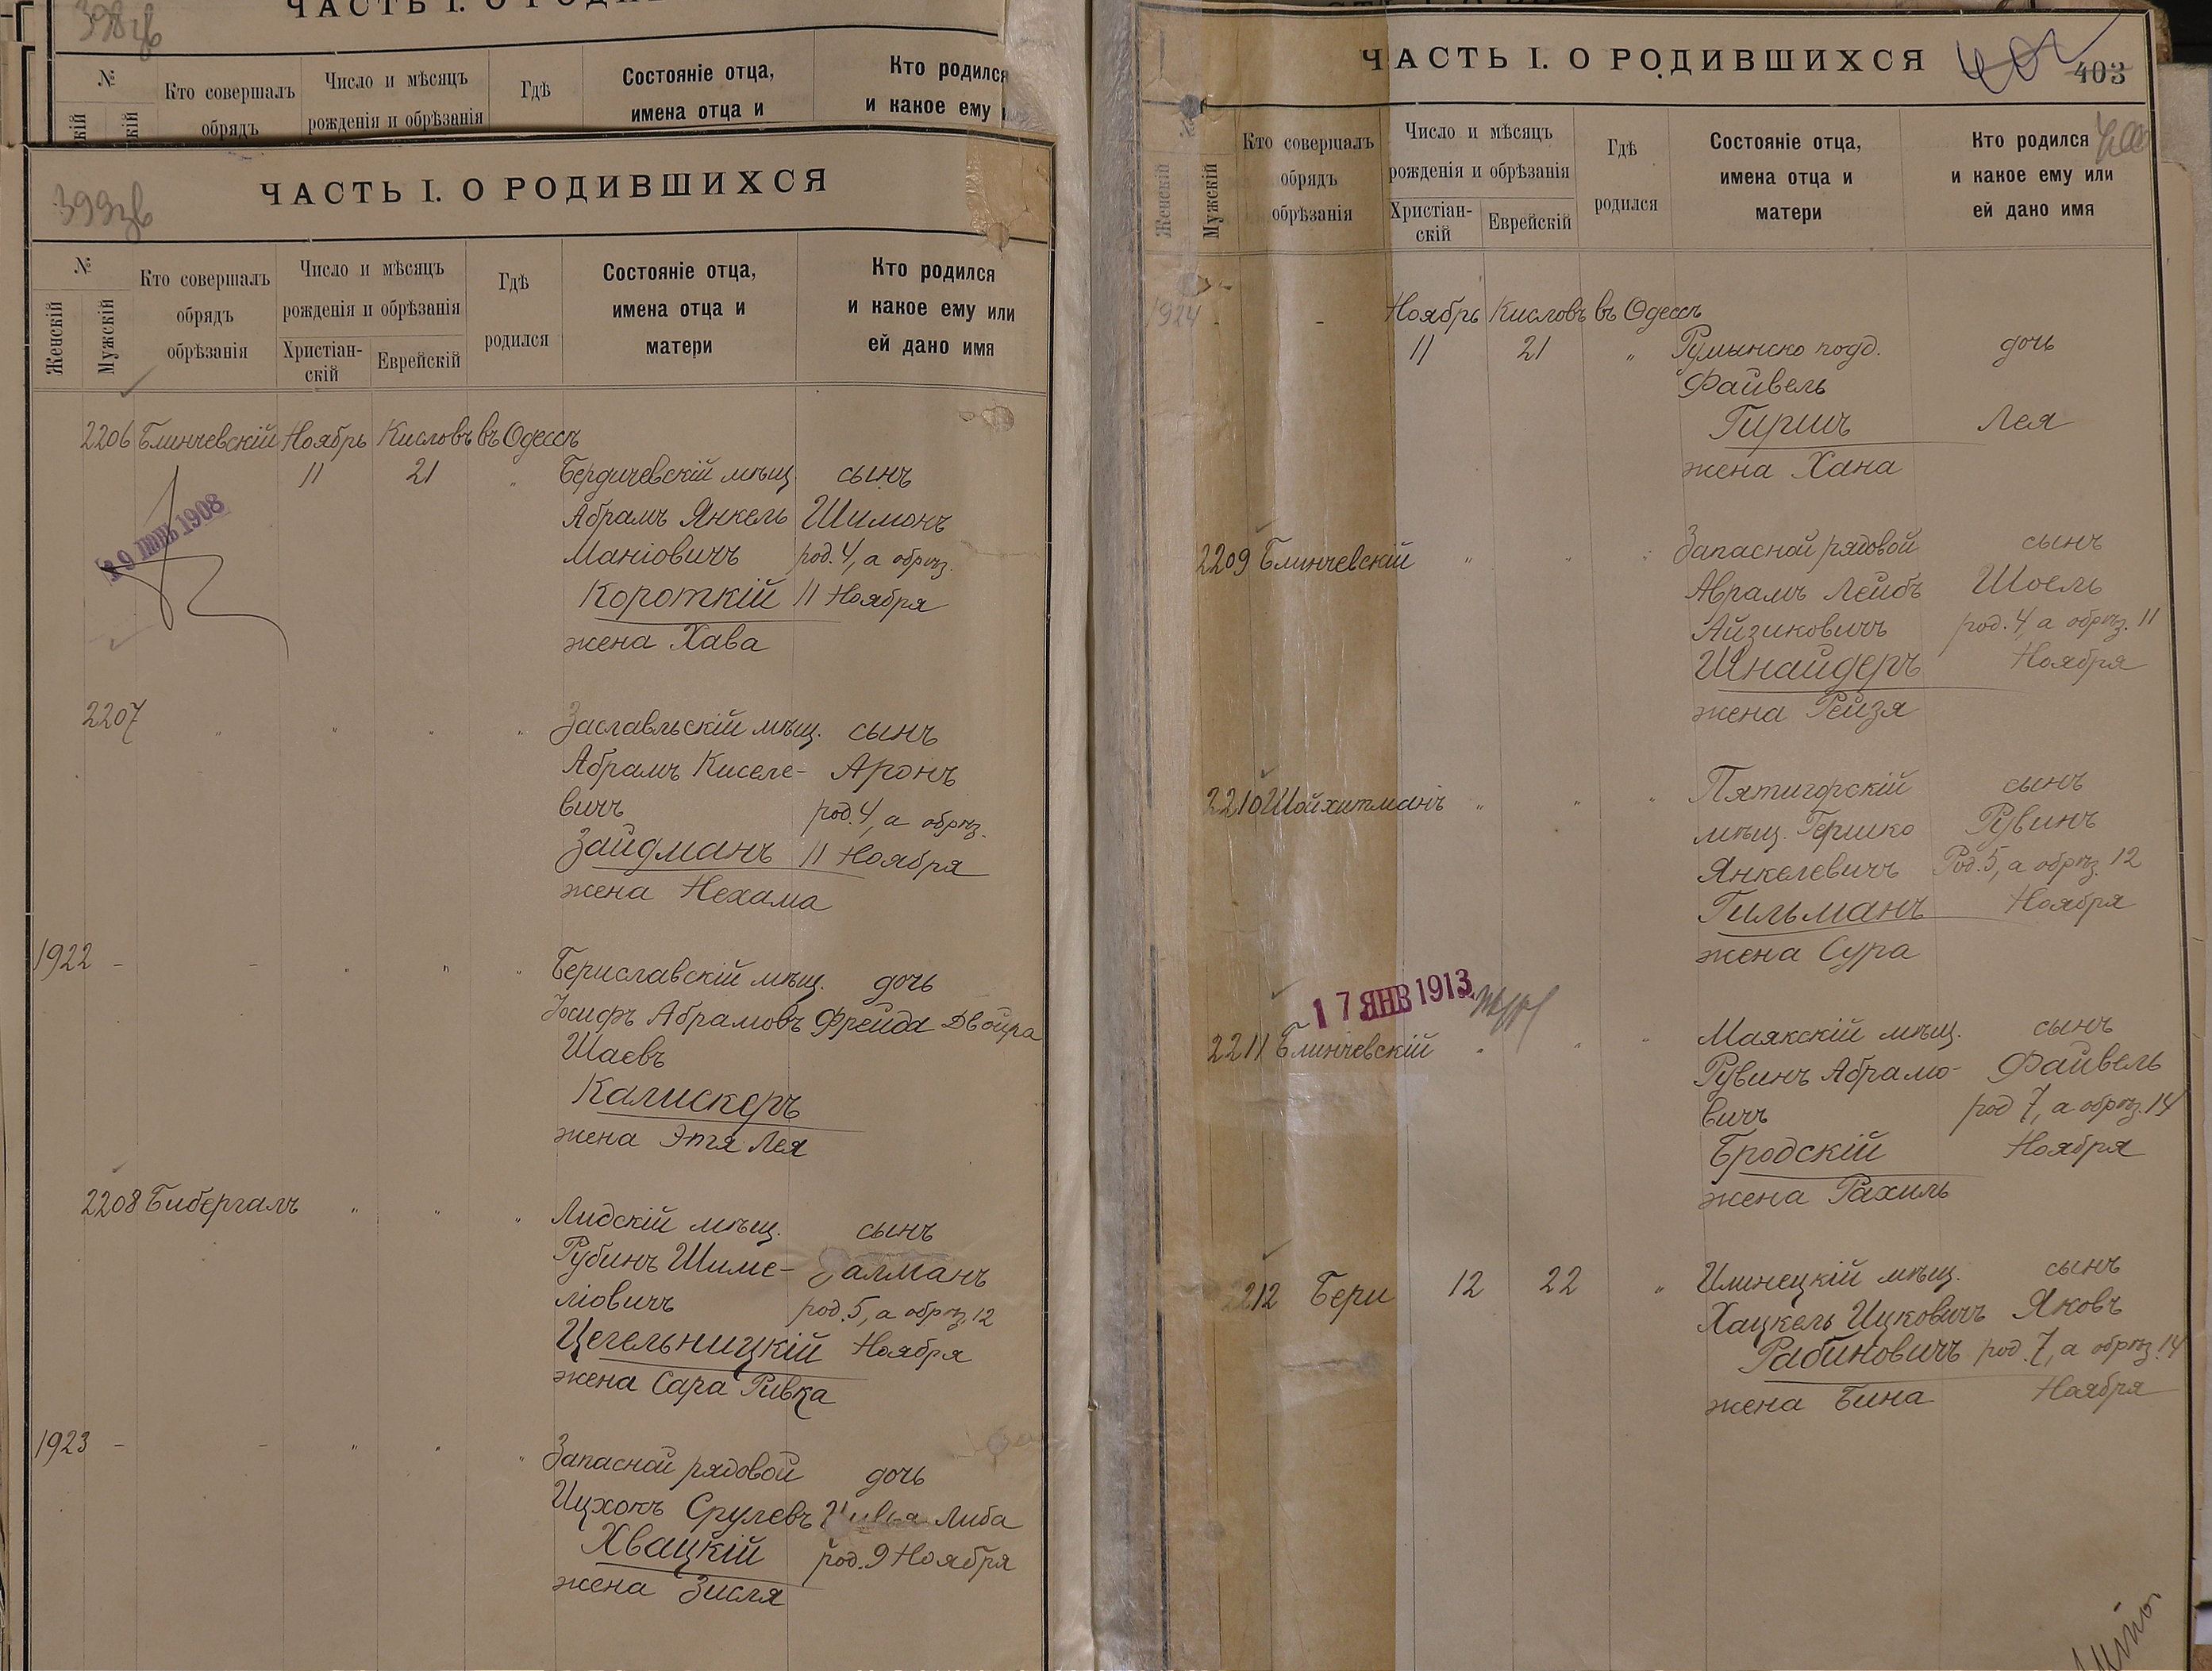 398 об
№
Кто совершалъ
обрядъ
Число и мѣсяцъ
рожденія и обрѣзанія
Гдѣ
Состояніе отца,
имена отца и
Кто родился
и какое ему
399 об
ЧАСТЬ I. О РОДИВШИХСЯ
№
Женскій
Мужскій
Кто совершалъ
обрядъ
обрѣзанія
Число и мѣсяцъ
рожденія и обрѣзанія
Христіан-
скій
Еврейскій
Гдѣ
родился
Состояніе отца,
имена отца и
матери
Кто родился
и какое ему или
ей дано имя
2206 Блинчевскій Ноябрь Кисловъ въ Одессѣ
11 21 " Бердичевскій мѣщ. сынъ
Абрамъ Янкель Шимонъ
Маніовичъ род. 4, а обрѣз.
Короткій 11 Ноября
жена Хава
19 ІЮНЬ 1908
2207 " " " " Заславльскій мѣщ. сынъ
Абрамъ Киселе- Аронъ
вичъ род. 4, а обрѣз.
Зайдманъ 11 Ноября
жена Нехама
1922 - - " " " Бериславскій мѣщ. дочь
Іосифъ Абрамовъ Фрейда Двойра
Шаевъ
Калискеръ
жена Этя Лея
2208 Бибергалъ " " " Лидскій мѣщ. сынъ
Рубинъ Шиме- Залманъ
ліовичъ род. 5, а обрѣз. 12
Цегельницкій Ноября
жена Сара Ривка
1923 - - " " " Запасной рядовой дочь
Ицхокъ Срулевъ Либа
Хвацкій род. 9 Ноября
жена Зисля
ЧАСТЬ I. О РОДИВШИХСЯ
403
400
Женскій
Мужскій
Кто совершалъ
обрядъ
обрѣзанія
Число и мѣсяцъ
рожденія и обрѣзанія
Христіан-
скій
Еврейскій
Гдѣ
родился
Состояніе отца,
имена отца и
матери
Кто родился
и какое ему или
ей дано имя
1924 - - Ноябрь Кисловъ въ Одессѣ
11 21 " Румынско подд. дочь
Файвель
Гиршъ Лея
жена Хана
2209 Блинчевскій " " " Запасной рядовой сынъ
Аврамъ Лейбъ Шоель
Айзиковичъ род. 4, а обрѣз. 11
Шнайдеръ Ноября
жена Рейзя
2210 Шойхитманъ " " " Пятигорскій сынъ
мѣщ. Гершко Рувинъ
Янкелевичъ Род. 5, а обрѣз. 12
Гильманъ Ноября
жена Сура
17 ЯНВ 1913
2211 Блинчевскій " " " Маякскій мѣщ. сынъ
Рувинъ Абрамо- Файвель
вичъ род 7, а обрѣз. 14
Бродскій Ноября
жена Рахиль
2212 Бери 12 22 " Илинецкій мѣщ. сынъ
Хацкель Ицковичъ Яковъ
Рабиновичъ род. 7, а обрѣз. 14
жена Бина Ноября